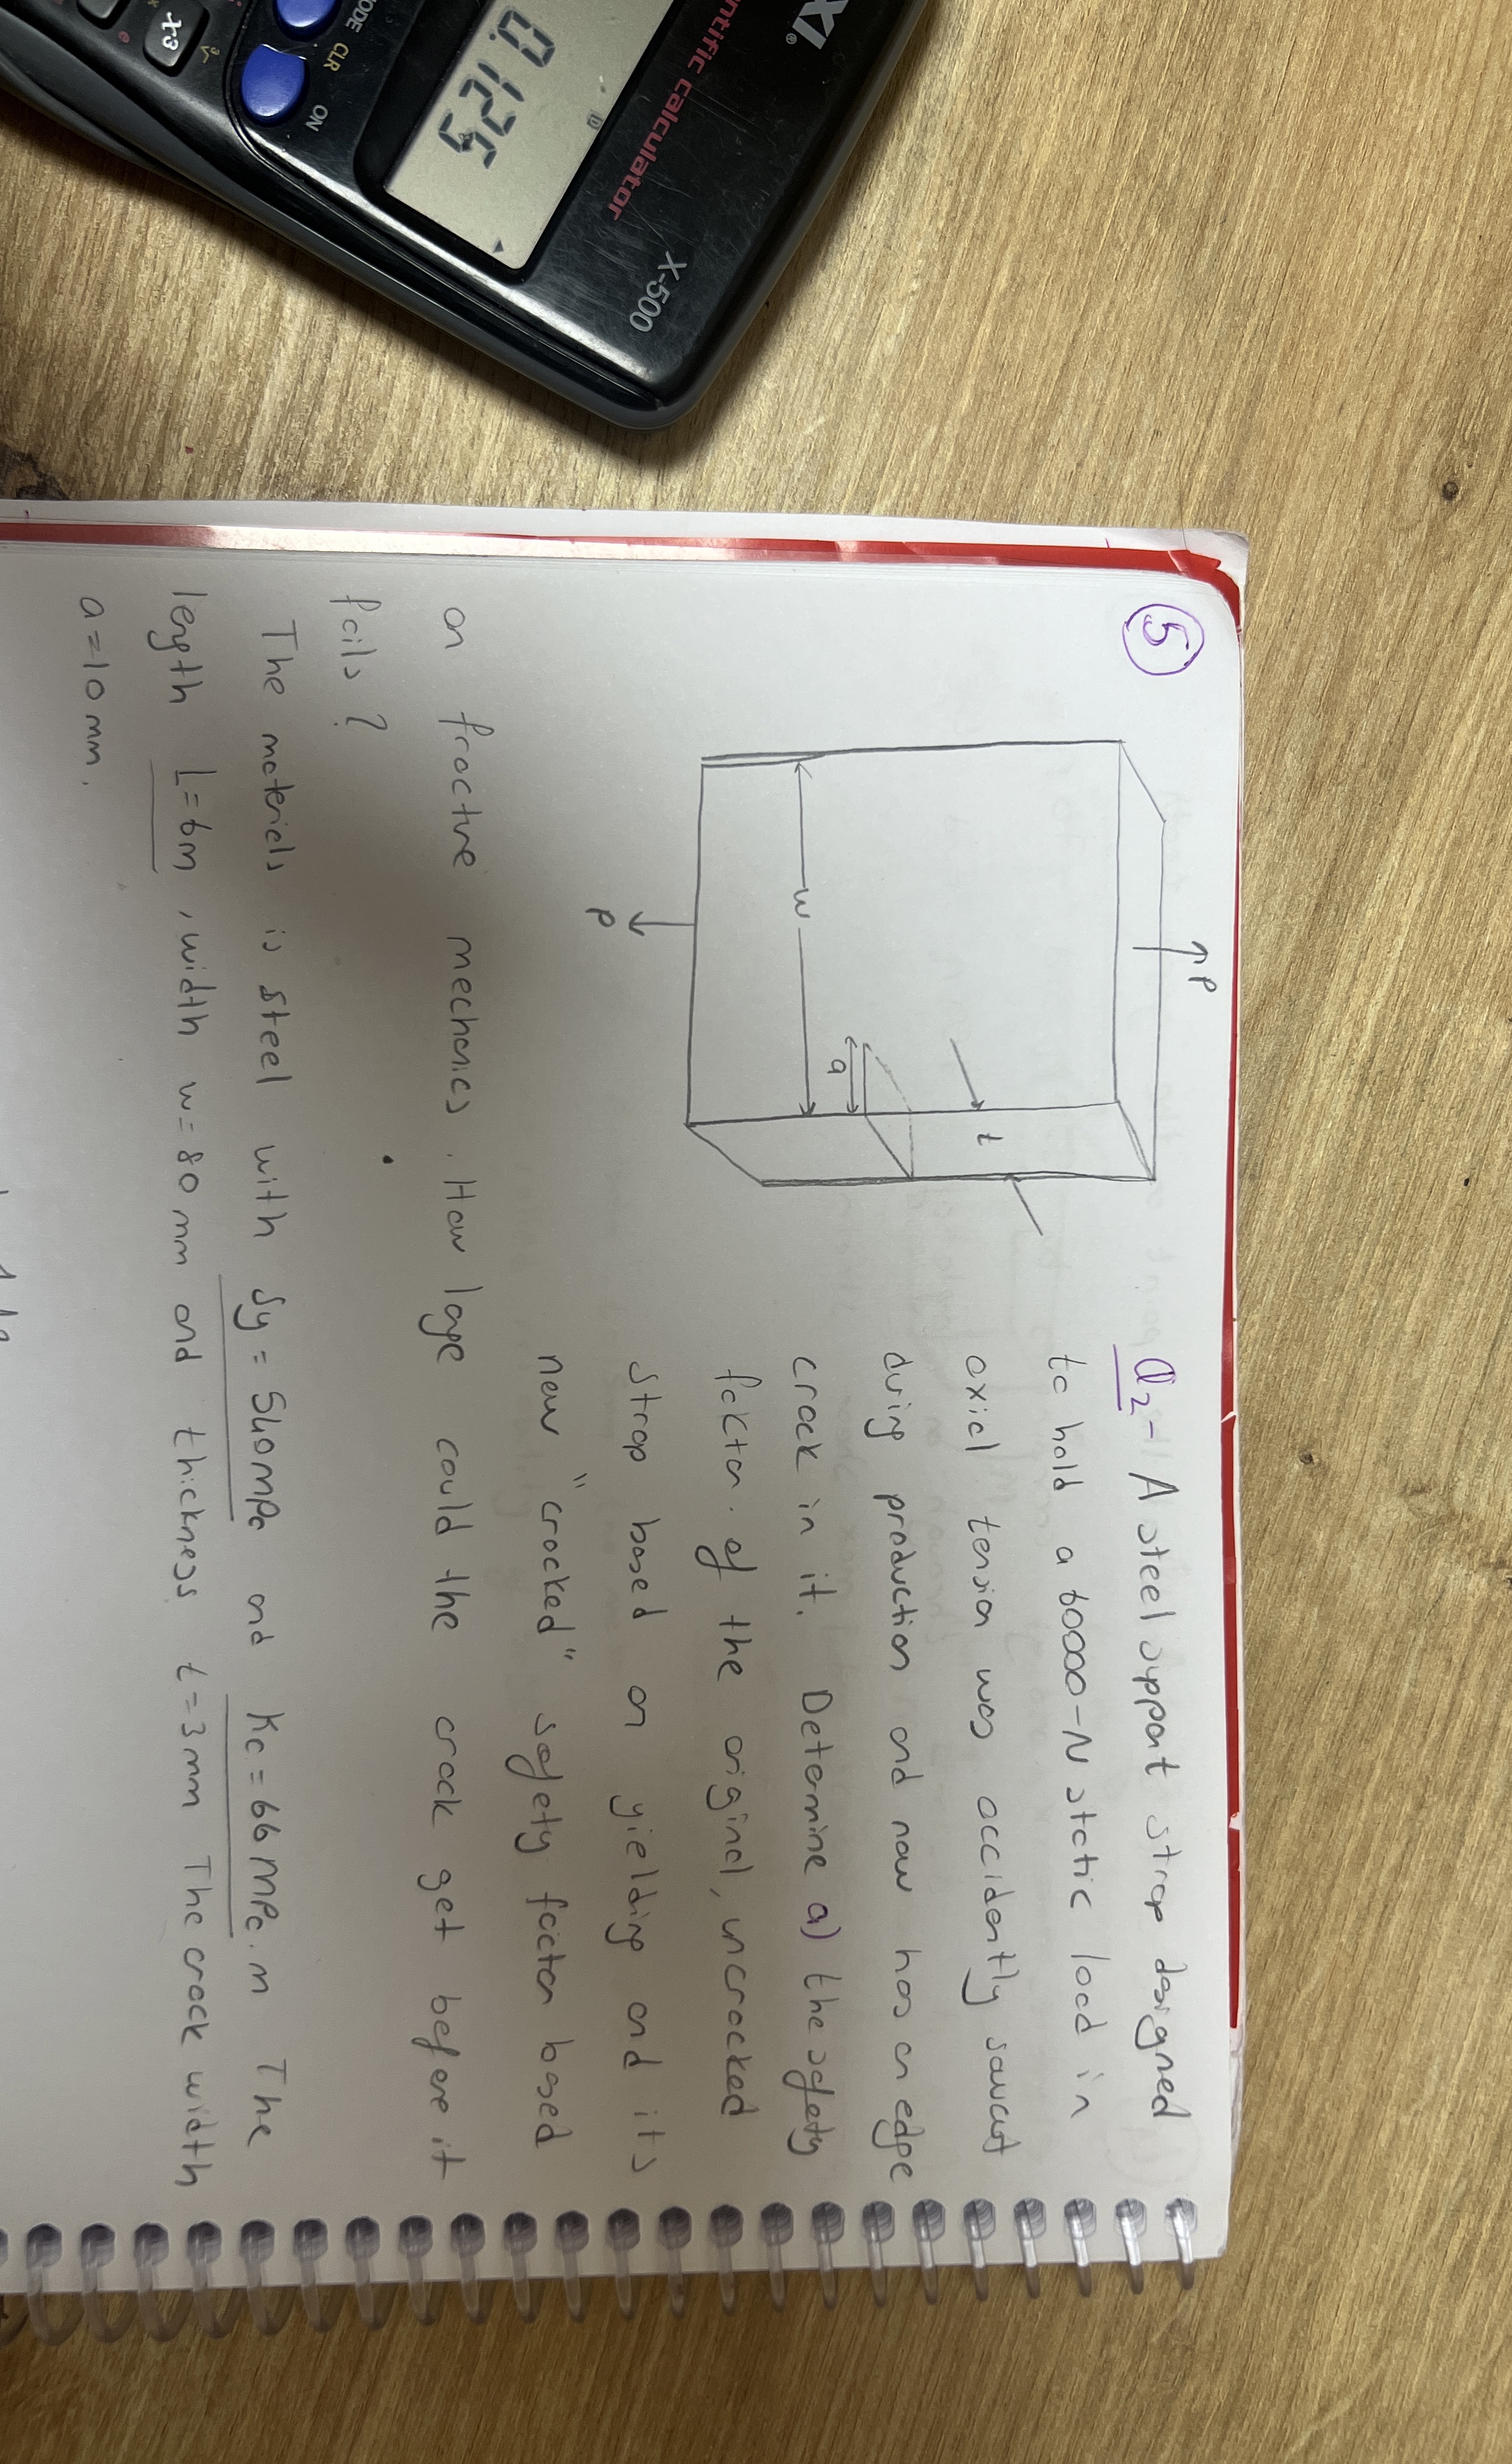 XI®
ntific calculator
X-500
0.125
ODE CLR
ON
x³
5
P
w
a
t
P
Q2- A steel support strap designed
to hold a 60000-N static load in
axiel tension was accidently sawcut
during production and now has an edge
crack in it. Determine a) the safety
faktor of the original, uncracked
strap based on yielding and its
new "cracked" safety factor based
on fracture mechanics. How large could the crack get before it
fails?
The materials is steel with Sy = 540mPa and Kc = 66 MPa.m The
length L=6m, width w=80 mm and thickness t=3mm The crack width
a=10mm.